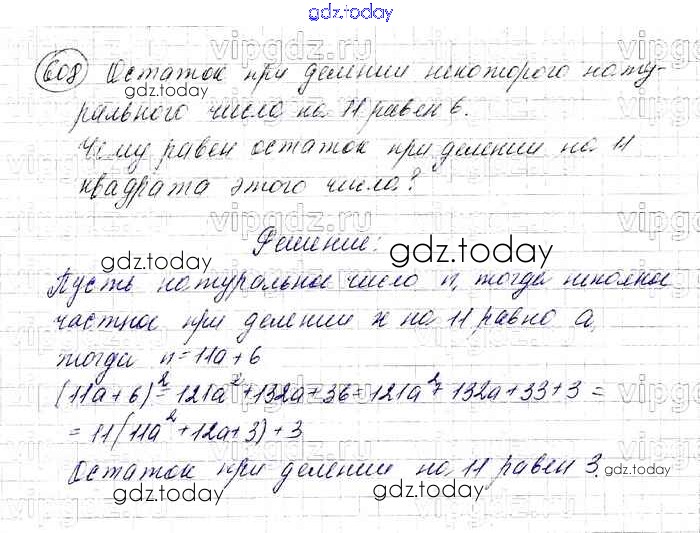 gdz.today
608 Остаток при делении некоторого нату-
рального числа на 11 равен 6.
Чему равен остаток при делении на 11
квадрата этого числа?
Решение:
Пусть натуральное число n, тогда неполное
частное при делении n на 11 равно a,
тогда n = 11a + 6
(11a + 6)² = 121a² + 132a + 36 = 121a² + 132a + 33 + 3 =
= 11(11a² + 12a + 3) + 3
Остаток при делении на 11 равен 3.
gdz.today
gdz.today
gdz.today
gdz.today
gdz.today
gdz.today
gdz.today
vipgdz.ru